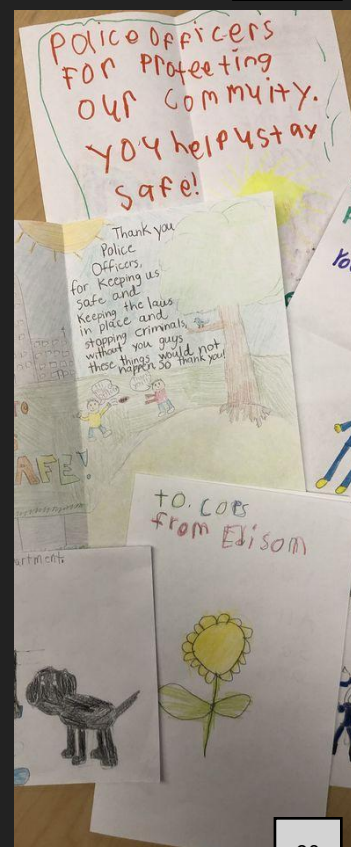 Police Officers
For Protecting
our Commuity.
you help us tay
safe!
Thank you
Police
Officers,
for keeping us
safe and
keeping the laws
in place and
stopping criminals,
without you guys
these things would not
happen, so thank you!
TO
AFE!
You
to. cops
from Edisom
artment.